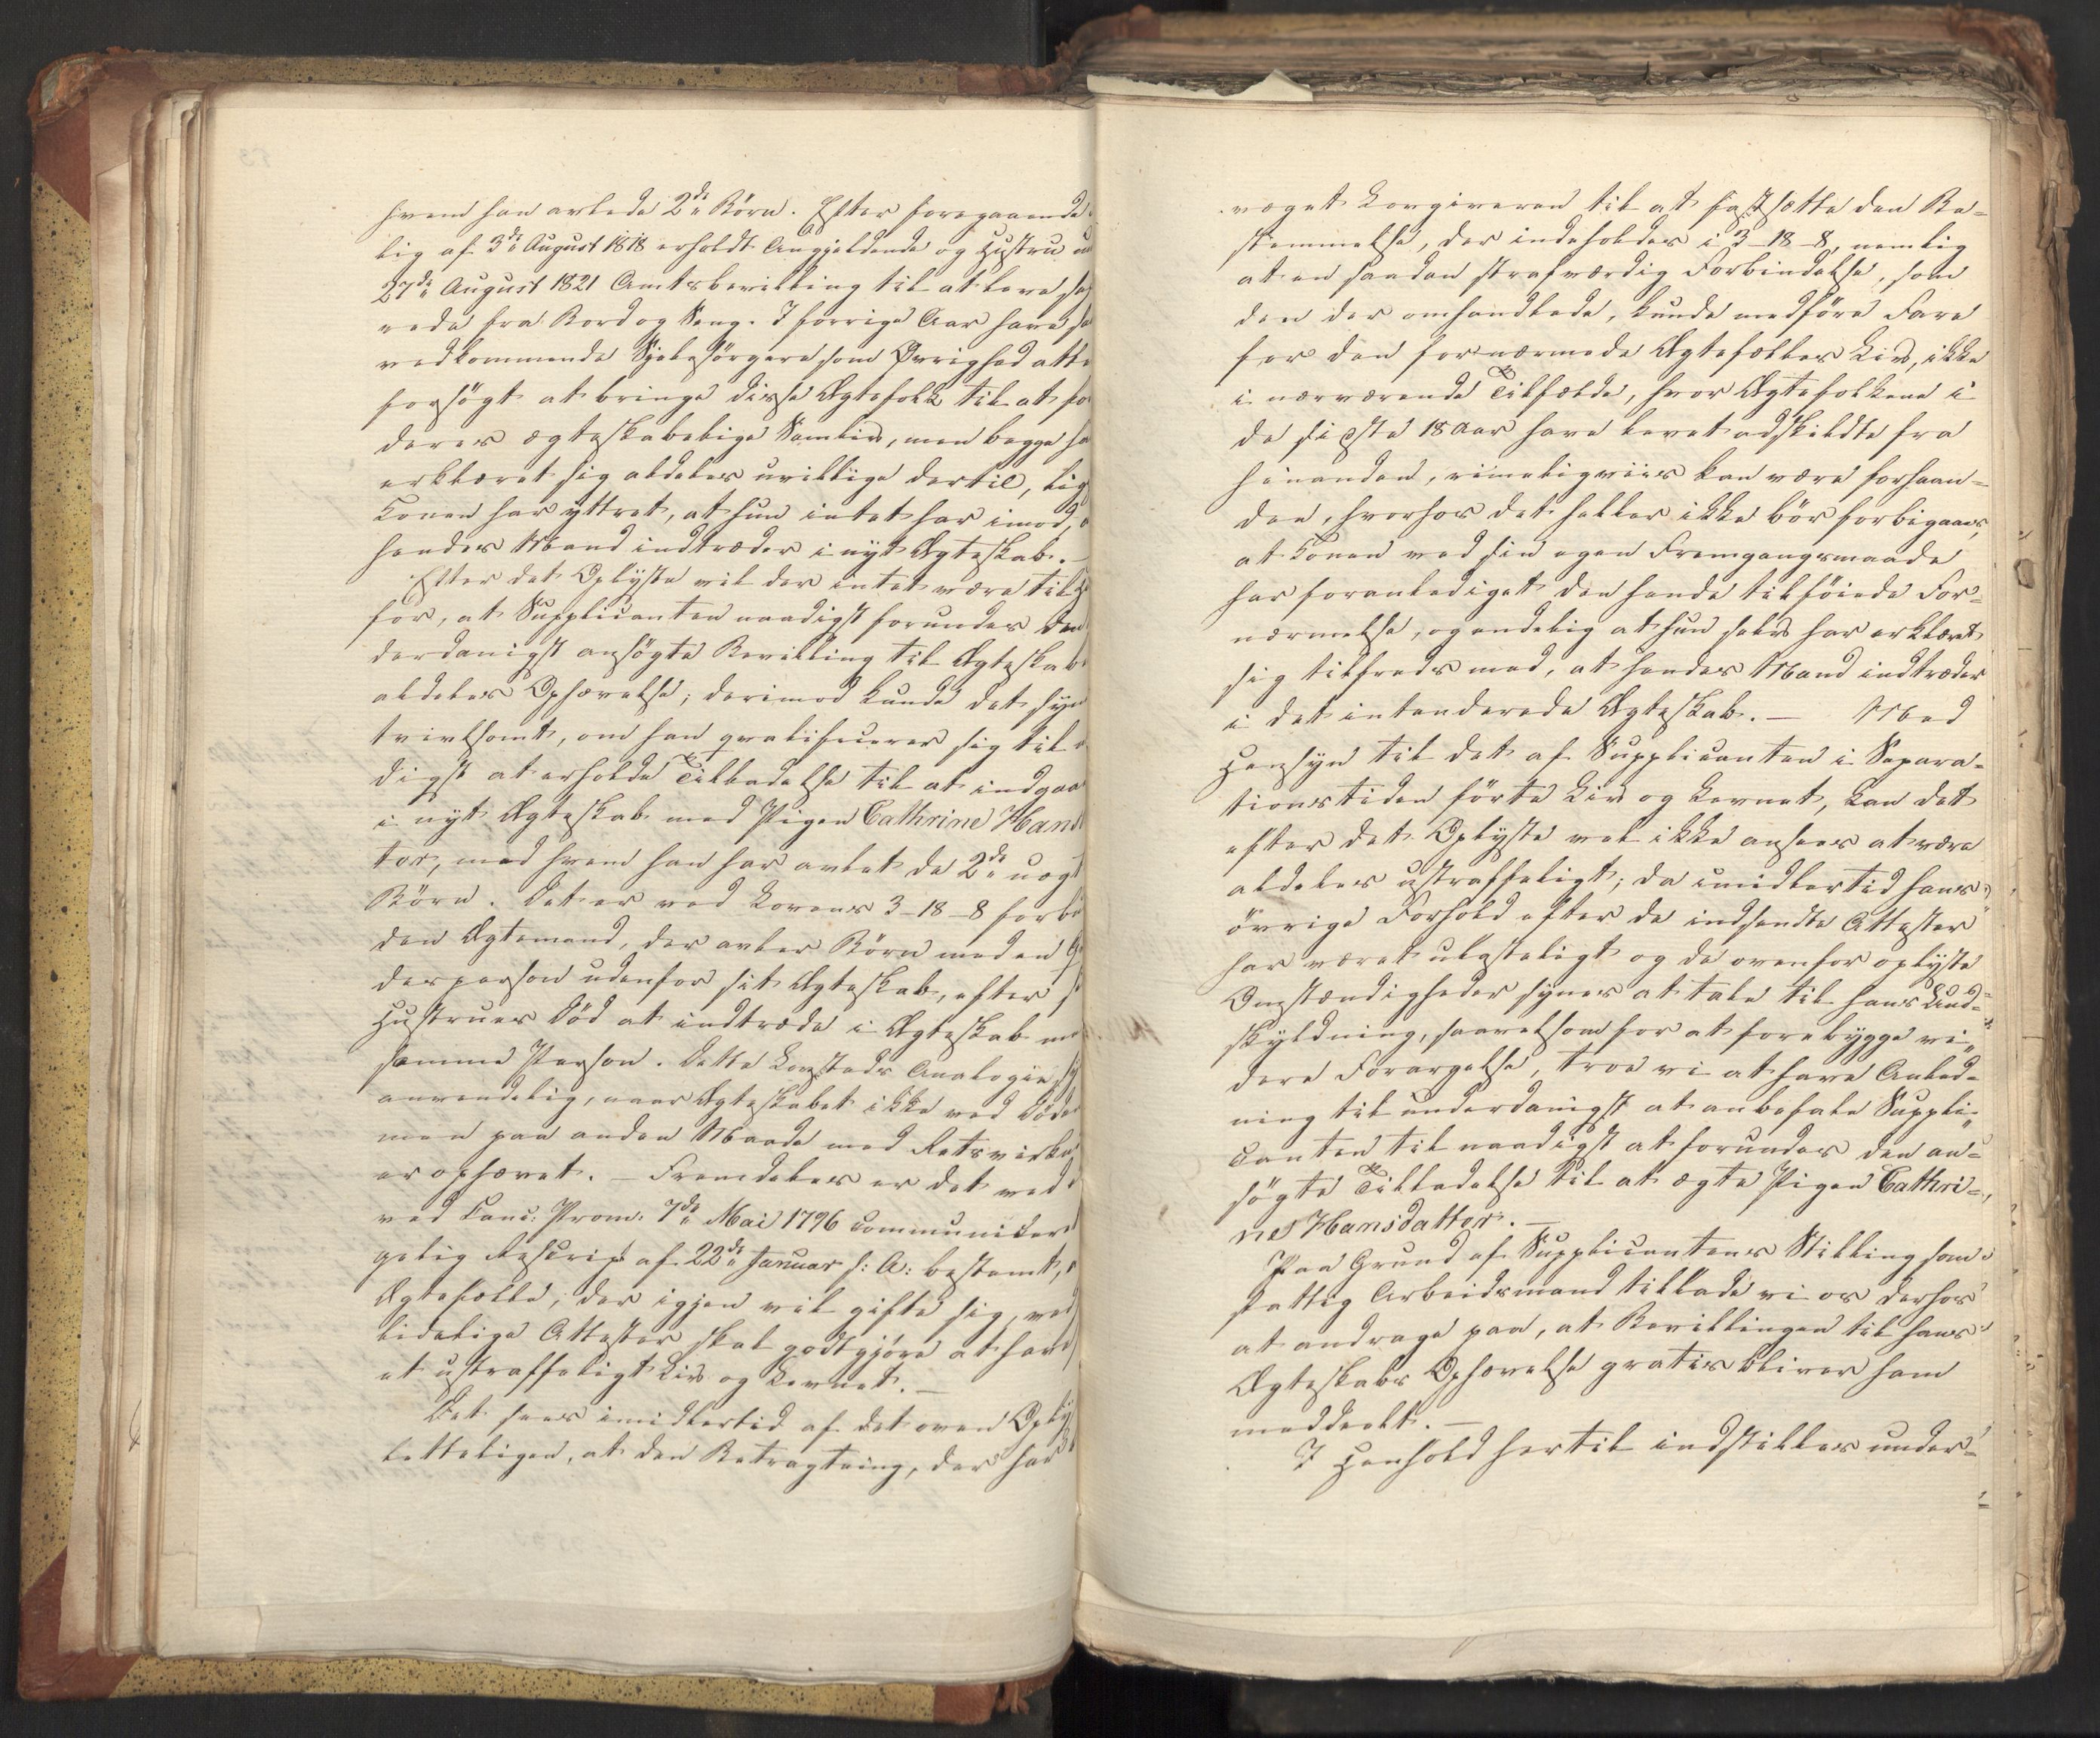 hvem han avlede 2de Børn. Efter foregaaende
lig af 3de August 1818 erholdt Angjældende og Hustru un
27de August 1821 Amtsbevilling til at leve sep
rede fra Bord og Seng. I forrige Aar have sa
vedkommende Sjelesörgere som Øvrighed atte
forsögt at bringe disse Ægtefolk til at fo
deres ægteskabelige Samliv, men begge ha
erklæret sig aldeles uvillige dertil, lig
Konen har yttret, at hun intet har imod, a
hendes Mand indtræder i nyt Ægteskab. —
Efter det Oplyste vil der intet være til
for, at Supplicanten naadigst forundes den
derdanigst ansögte Bevilling til Ægteskab
aldeles Ophævelse; derimod kunde det syn
tvivlsomt, om han qvalificerer sig til
digst at erholde Tilladelse til at indgaa
i nyt Ægteskab med Pigen Cathrine Hansd
ter, med hvem han har avlet de 2de uægt
Börn. Det er ved Lovens 3-18-8 forbu
den Ægtemand, der avler Börn med en Q
desperson udenfor sit Ægteskab, efter s
Hustrues Död at indtræde i Ægteskab me
samme Person. Dette Lovsteds Analogie sy
anvendelig, naar Ægteskabet ikke ved Döde
men paa anden Maade med Retsvirkn
er ophævet. — Fremdeles er det ved
ved Canc: Prom: 7de Mai 1796 communicer
gelig Rescript af 22de Januar s: A: bestemt, a
Ægtefælle, der igjen vil gifte sig, ved
lidelige Attester skal godtgjöre at have
et ustraffeligt Liv og Levnet. —
Det sees imidlertid af det oven Oply
letteligen, at den Betragtning, der har
væget Lovgiveren til at fastsætte den Be=
stemmelse, der indeholdes i 3-18-8, nemlig
at en saadan strafværdig Forbindelse, som
den der omhandlede, kunde medföre Fare
for den fornærmede Ægtefælles Liv, ikke
i nærværende Tilfælde, hvor Ægtefolkene i
de sidste 18 Aar have levet adskildte fra
hinanden, rimeligviis kan være forhaan=
den, hvorhos det heller ikke bör forbigaaes,
at Konen ved sin egen Fremgangsmaade
har foranlediget den hende tilföiede For=
nærmelse, og endelig at hun selv har erklæret
sig tilfreds med, at hendes Mand indtræder
i det intenderede Ægteskab. — Med
Hensyn til det af Supplicanten i Separa=
tionstiden förte Liv og Levnet, kan det
efter det Oplyste vel ikke ansees at være
aldeles ustraffeligt; da imidlertid hans
övrige Forhold efter de indsendte Attester
har været ulasteligt og de ovenfor oplyste
Omstændigheder synes at tale til hans Und=
skyldning, saavelsom for at forebygge vi=
dere Forargelse, troe vi at have Anled=
ning til underdanigst at anbefale Suppli=
canten til naadigst at forundes den an=
sögte Tilladelse til at ægte Pigen Cathri=
ne Hansdatter. —
Paa Grund af Supplicantens Stilling som
fattig Arbeidsmand tillade vi os derhos
at andrage paa, at Bevillingen til hans
Ægteskabs Ophævelse gratis bliver ham
meddeelt. —
I Henhold hertil indstilles under=